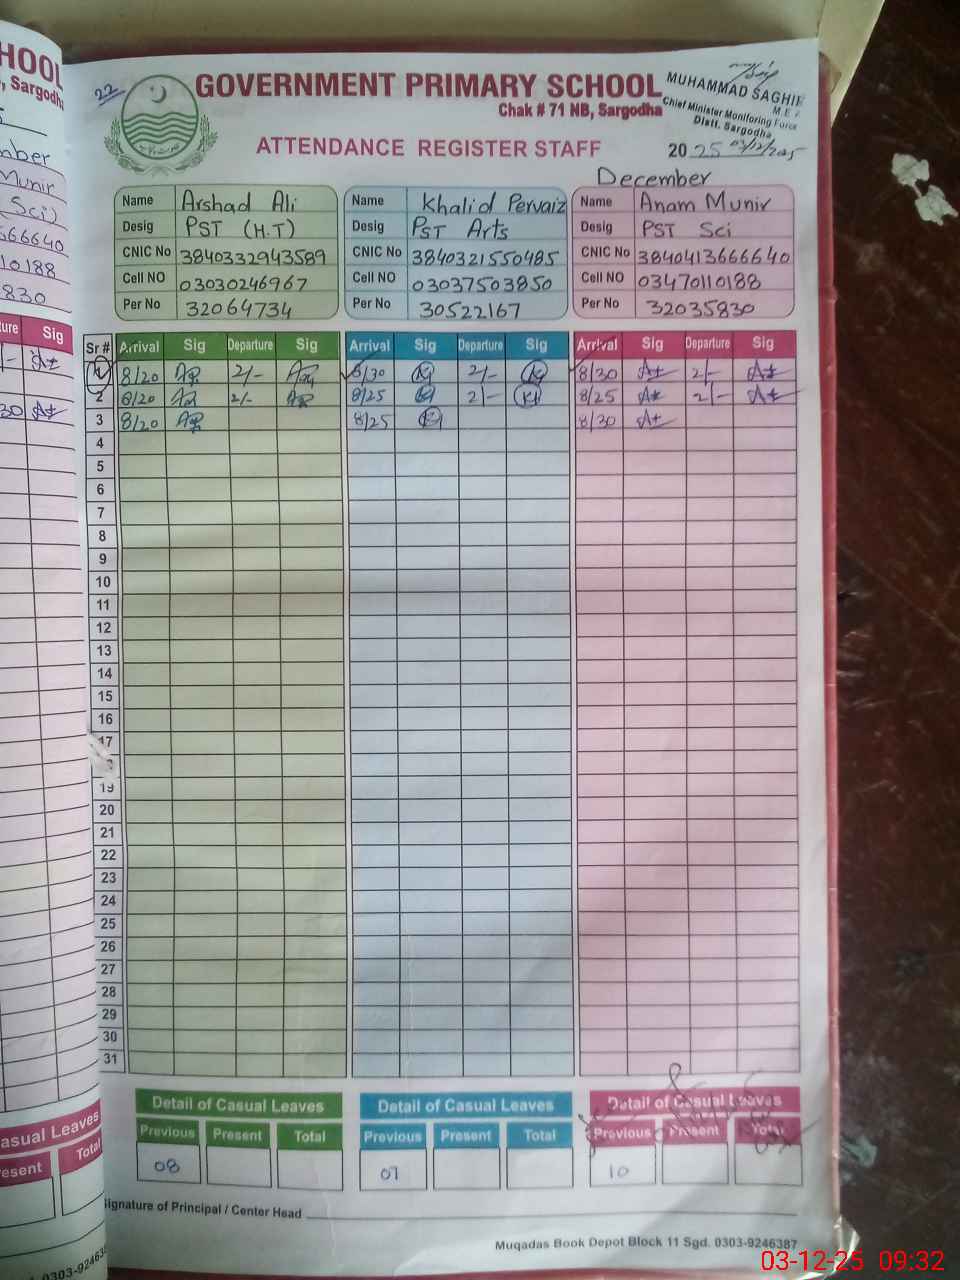 22
GOVERNMENT PRIMARY SCHOOL
Chak # 71 NB, Sargodha
ATTENDANCE REGISTER STAFF
MUHAMMAD SAGHIR
M.E.A
Chief Minister Monitoring Force
Distt. Sargodha
2025 03/12/2025
December
Name Arshad Ali
Desig PST (H.T)
CNIC No 3840332943589
Cell NO 03030246967
Per No 32064734
Name Khalid Pervaiz
Desig PST Arts
CNIC No 3840321550485
Cell NO 03037503850
Per No 30522167
Name Anam Munir
Desig PST Sci
CNIC No 3840413666640
Cell NO 03470110188
Per No 32035830
Sr # Arrival Sig Departure Sig Arrival Sig Departure Sig Arrival Sig Departure Sig
1 8/20 2/- 8/30 2/- 8/30 2/-
2 8/20 2/- 8/25 2/- 8/25 2/-
3 8/20 8/25 8/30
4
5
6
7
8
9
10
11
12
13
14
15
16
17
19
20
21
22
23
24
25
26
27
28
29
30
31
Detail of Casual Leaves
Previous Present Total
08
Detail of Casual Leaves
Previous Present Total
07
Detail of Casual Leaves
Previous Present Total
10
Signature of Principal / Center Head
Muqadas Book Depot Block 11 Sgd. 0303-9246387
HOOL
, Sargodha
Munir
(Sci)
666640
10188
830
Sig
30
Casual Leaves
Present Total
03-12-25 09:32